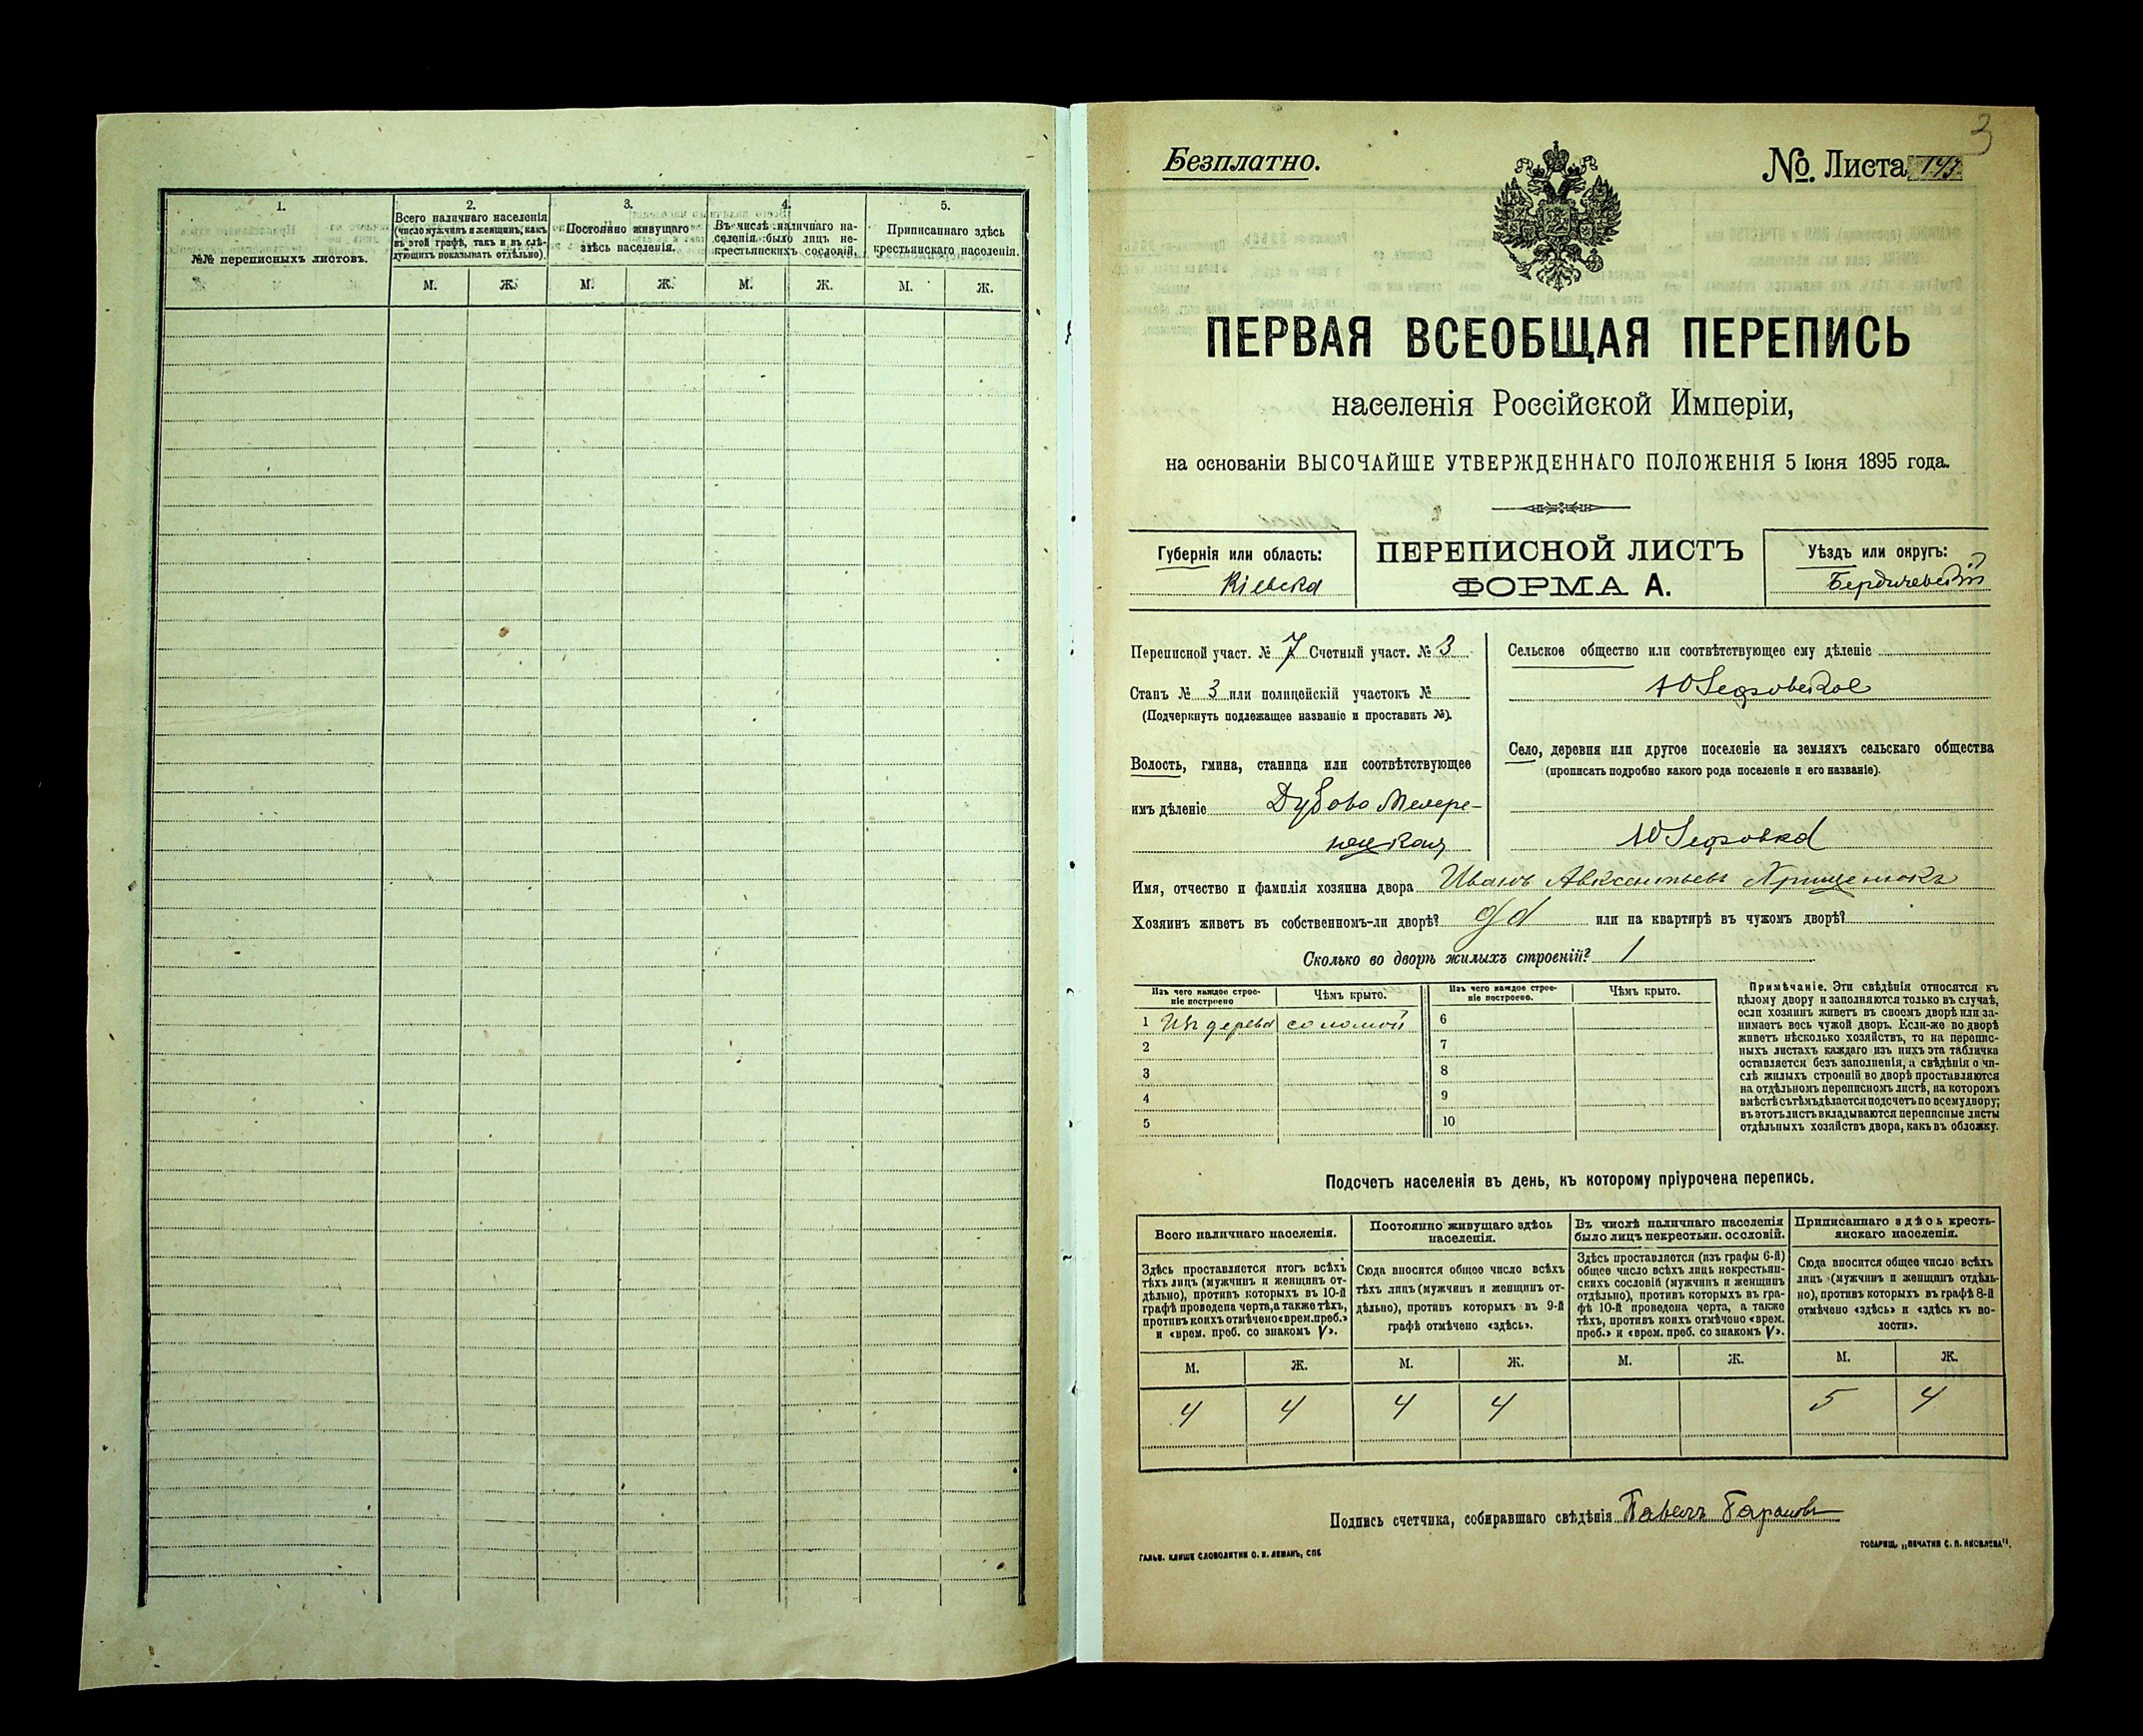 1.
2.
3.
4.
5.
№№ переписныхъ листовъ.
Всего наличнаго населенія
(число мужчинъ и женщинъ, какъ
въ этой графѣ, такъ и въ слѣ-
дующихъ показывать отдѣльно).
Постоянно живущаго
здѣсь населенія.
Въ числѣ наличнаго на-
селенія было лицъ не-
крестьянскихъ сословій.
Приписаннаго здѣсь
крестьянскаго населенія.
М. Ж. М. Ж. М. Ж. М. Ж.
3
Безплатно.
No. Листа
ПЕРВАЯ ВСЕОБЩАЯ ПЕРЕПИСЬ
населенія Россійской Имперіи,
на основаніи ВЫСОЧАЙШЕ УТВЕРЖДЕННАГО ПОЛОЖЕНІЯ 5 Іюня 1895 года.
Губернія или область:
Кіевска
ПЕРЕПИСНОЙ ЛИСТЪ
ФОРМА А.
Уѣздъ или округъ:
Бердичевскій
Переписной участ. № 7 Счетный участ. № 3
Станъ № 3 или полицейскій участокъ №
(Подчеркнуть подлежащее названіе и проставить №).
Волость, гмина, станица или соотвѣтствующее
имъ дѣленіе Дубово Мехере-
нецкая
Сельское общество или соотвѣтствующее ему дѣленіе
Юзефовское
Село, деревня или другое поселеніе на земляхъ сельскаго общества
(прописать подробно какого рода поселеніе и его названіе).
Юзефовка
Имя, отчество и фамилія хозяина двора Иванъ Авксентьевъ Хрищенюкъ
Хозяинъ живетъ въ собственномъ-ли дворѣ? да или на квартирѣ въ чужомъ дворѣ?
Сколько во дворѣ жилыхъ строеній? 1
Изъ чего каждое строе-
ніе построено
Чѣмъ крыто.
Изъ чего каждое строе-
ніе построено.
Чѣмъ крыто.
1 Изъ дерева соломой
2
3
4
5
6
7
8
9
10
Примѣчаніе. Эти свѣдѣнія относятся къ
цѣлому двору и заполняются только въ случаѣ,
если хозяинъ живетъ въ своемъ дворѣ или за-
нимаетъ весь чужой дворъ. Если-же во дворѣ
живетъ нѣсколько хозяйствъ, то на перепис-
ныхъ листахъ каждаго изъ нихъ эта табличка
оставляется безъ заполненія, а свѣдѣнія о чи-
слѣ жилыхъ строеній во дворѣ проставляются
на отдѣльномъ переписномъ листѣ, на которомъ
вмѣстѣ съ тѣмъ дѣлается подсчетъ по всему двору;
въ этотъ листъ вкладываются переписные листы
отдѣльныхъ хозяйствъ двора, какъ въ обложку.
Подсчетъ населенія въ день, къ которому пріурочена перепись.
Всего наличнаго населенія.
Здѣсь проставляется итогъ всѣхъ
тѣхъ лицъ (мужчинъ и женщинъ от-
дѣльно), противъ которыхъ въ 10-й
графѣ проведена черта, а также тѣхъ,
противъ коихъ отмѣчено «врем. преб.»
и «врем. преб. со знакомъ V».
Постоянно живущаго здѣсь
населенія.
Сюда вносится общее число всѣхъ
тѣхъ лицъ (мужчинъ и женщинъ от-
дѣльно), противъ которыхъ въ 9-й
графѣ отмѣчено «здѣсь».
Въ числѣ наличнаго населенія
было лицъ некрестьян. сословій.
Здѣсь проставляется (изъ графы 6-й)
общее число всѣхъ лицъ некрестьян-
скихъ сословій (мужчинъ и женщинъ
отдѣльно), противъ которыхъ въ гра-
фѣ 10-й проведена черта, а также
тѣхъ, противъ коихъ отмѣчено «врем.
преб.» и «врем. преб. со знакомъ V».
Приписаннаго здѣсь кресть-
янскаго населенія.
Сюда вносится общее число всѣхъ
лицъ (мужчинъ и женщинъ отдѣль-
но), противъ которыхъ въ графѣ 8-й
отмѣчено «здѣсь» и «здѣсь къ во-
лости».
М. Ж. М. Ж. М. Ж. М. Ж.
4 4 4 4 5 4
Подпись счетчика, собиравшаго свѣдѣнія Павелъ
ГАЛЬВ. КЛИШЕ СЛОВОЛИТНИ О. И. ЛЕМАНЪ, СПБ
ТОВАРИЩ. „ПЕЧАТНЯ С. П. ЯКОВЛЕВА“.